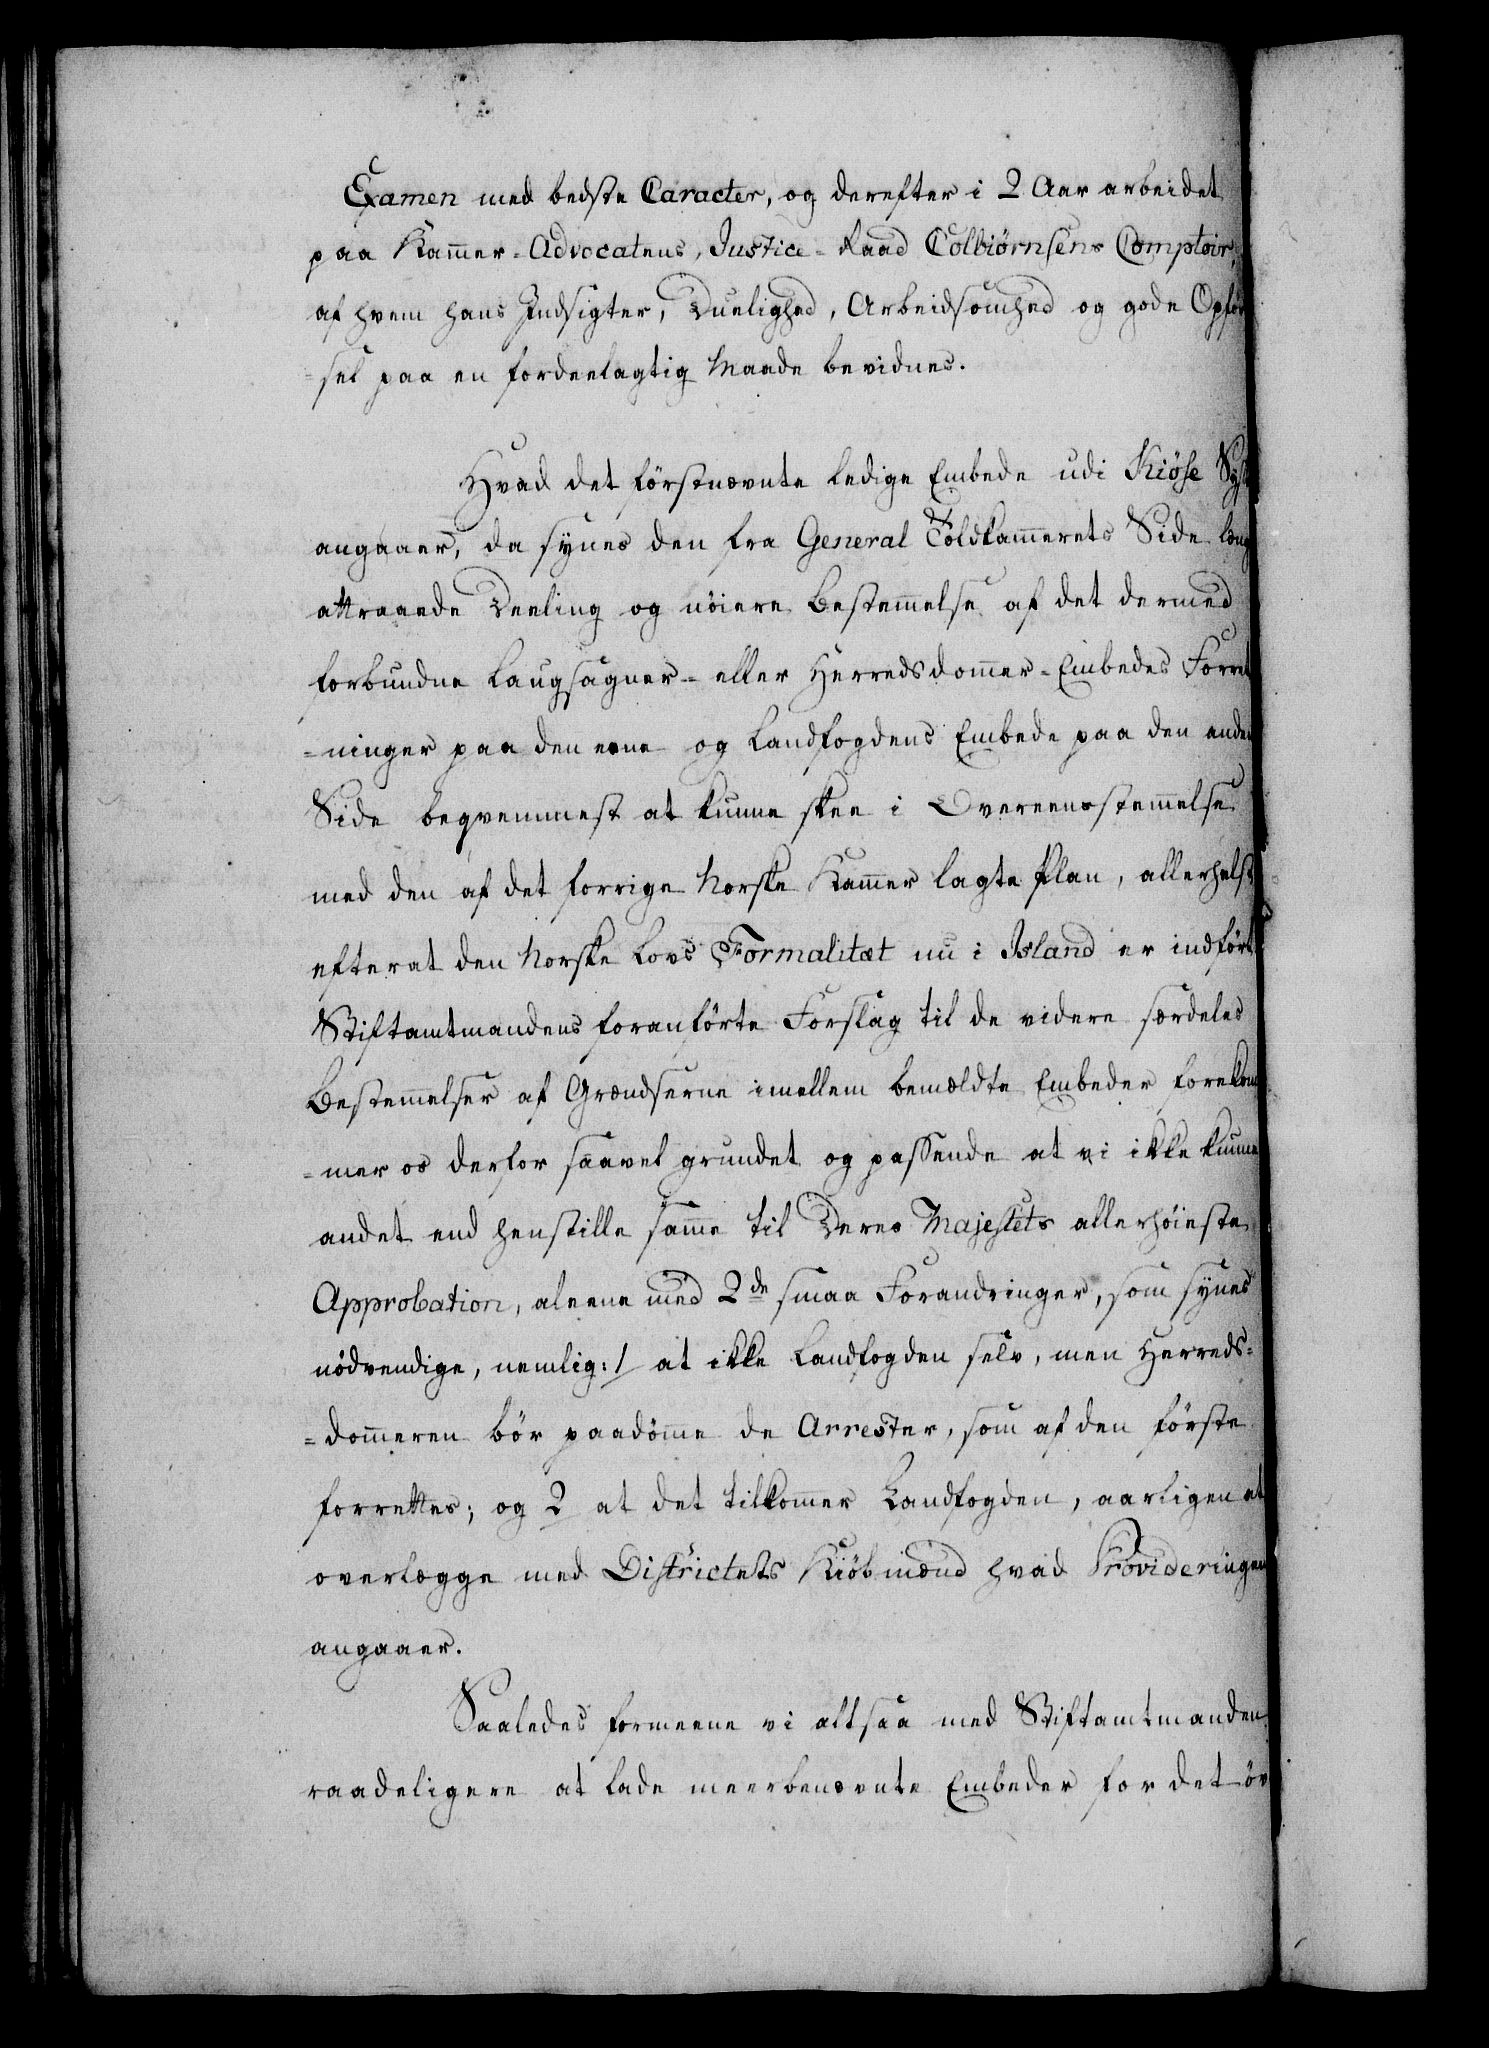 Examen med bedste Caracter, og derefter i 2 Aar arbeidet
paa Kam̄er-Advocatens, Justice-Raad Colbiørnsens Comptoir,
af hvem hans Indsigter, Duelighed, Arbeidsomhed og gode Opfør
=sel paa en fordeelagtig Maade bevidnes.
Hvad det förstnævnte ledige Embede udi Kiöse Sys
angaaer, da synes den fra General Toldkam̄erets Side læng
attraaede Deeling og nöiere Bestem̄else af det dermed
forbundne Laugsagner- eller Herredsdom̄er-Embedes Forret
=ninger paa den eene og Landfogdens Embede paa den anden
Side beqvemmest at kunne skee i Overeensstem̄else
med den af det forrige Norske Kam̄er lagte Plan, allerhelst
efterat den Norske Lovs Formalitæt nu i Island er indført
Stiftamtmandens foranförte Forslag til de videre særdeles
Bestem̄elser af Grændserne imellem bemældte Embeder forekom
=mer os derfor saavel grundet og passende at vi ikke kunne
andet end henstille sam̄e til Deres Majestets allerhöieste
Approbation, aleene med 2de smaa Forandringer, som synes
nödvendige, nemlig: 1/ at ikke Landfogden selv, men Herreds=
=dom̄eren bör paadöm̄e de Arrester, som af den förste
forrettes; og 2 at det tilkom̄er Landfogden, aarligen at
overlægge med Districtets Kiöbmænd hvad Provideringen
angaaer.
Saaledes formeene vi altsaa med Stiftamtmanden
raadeligere at lade meerbenævnte Embeder for det öv